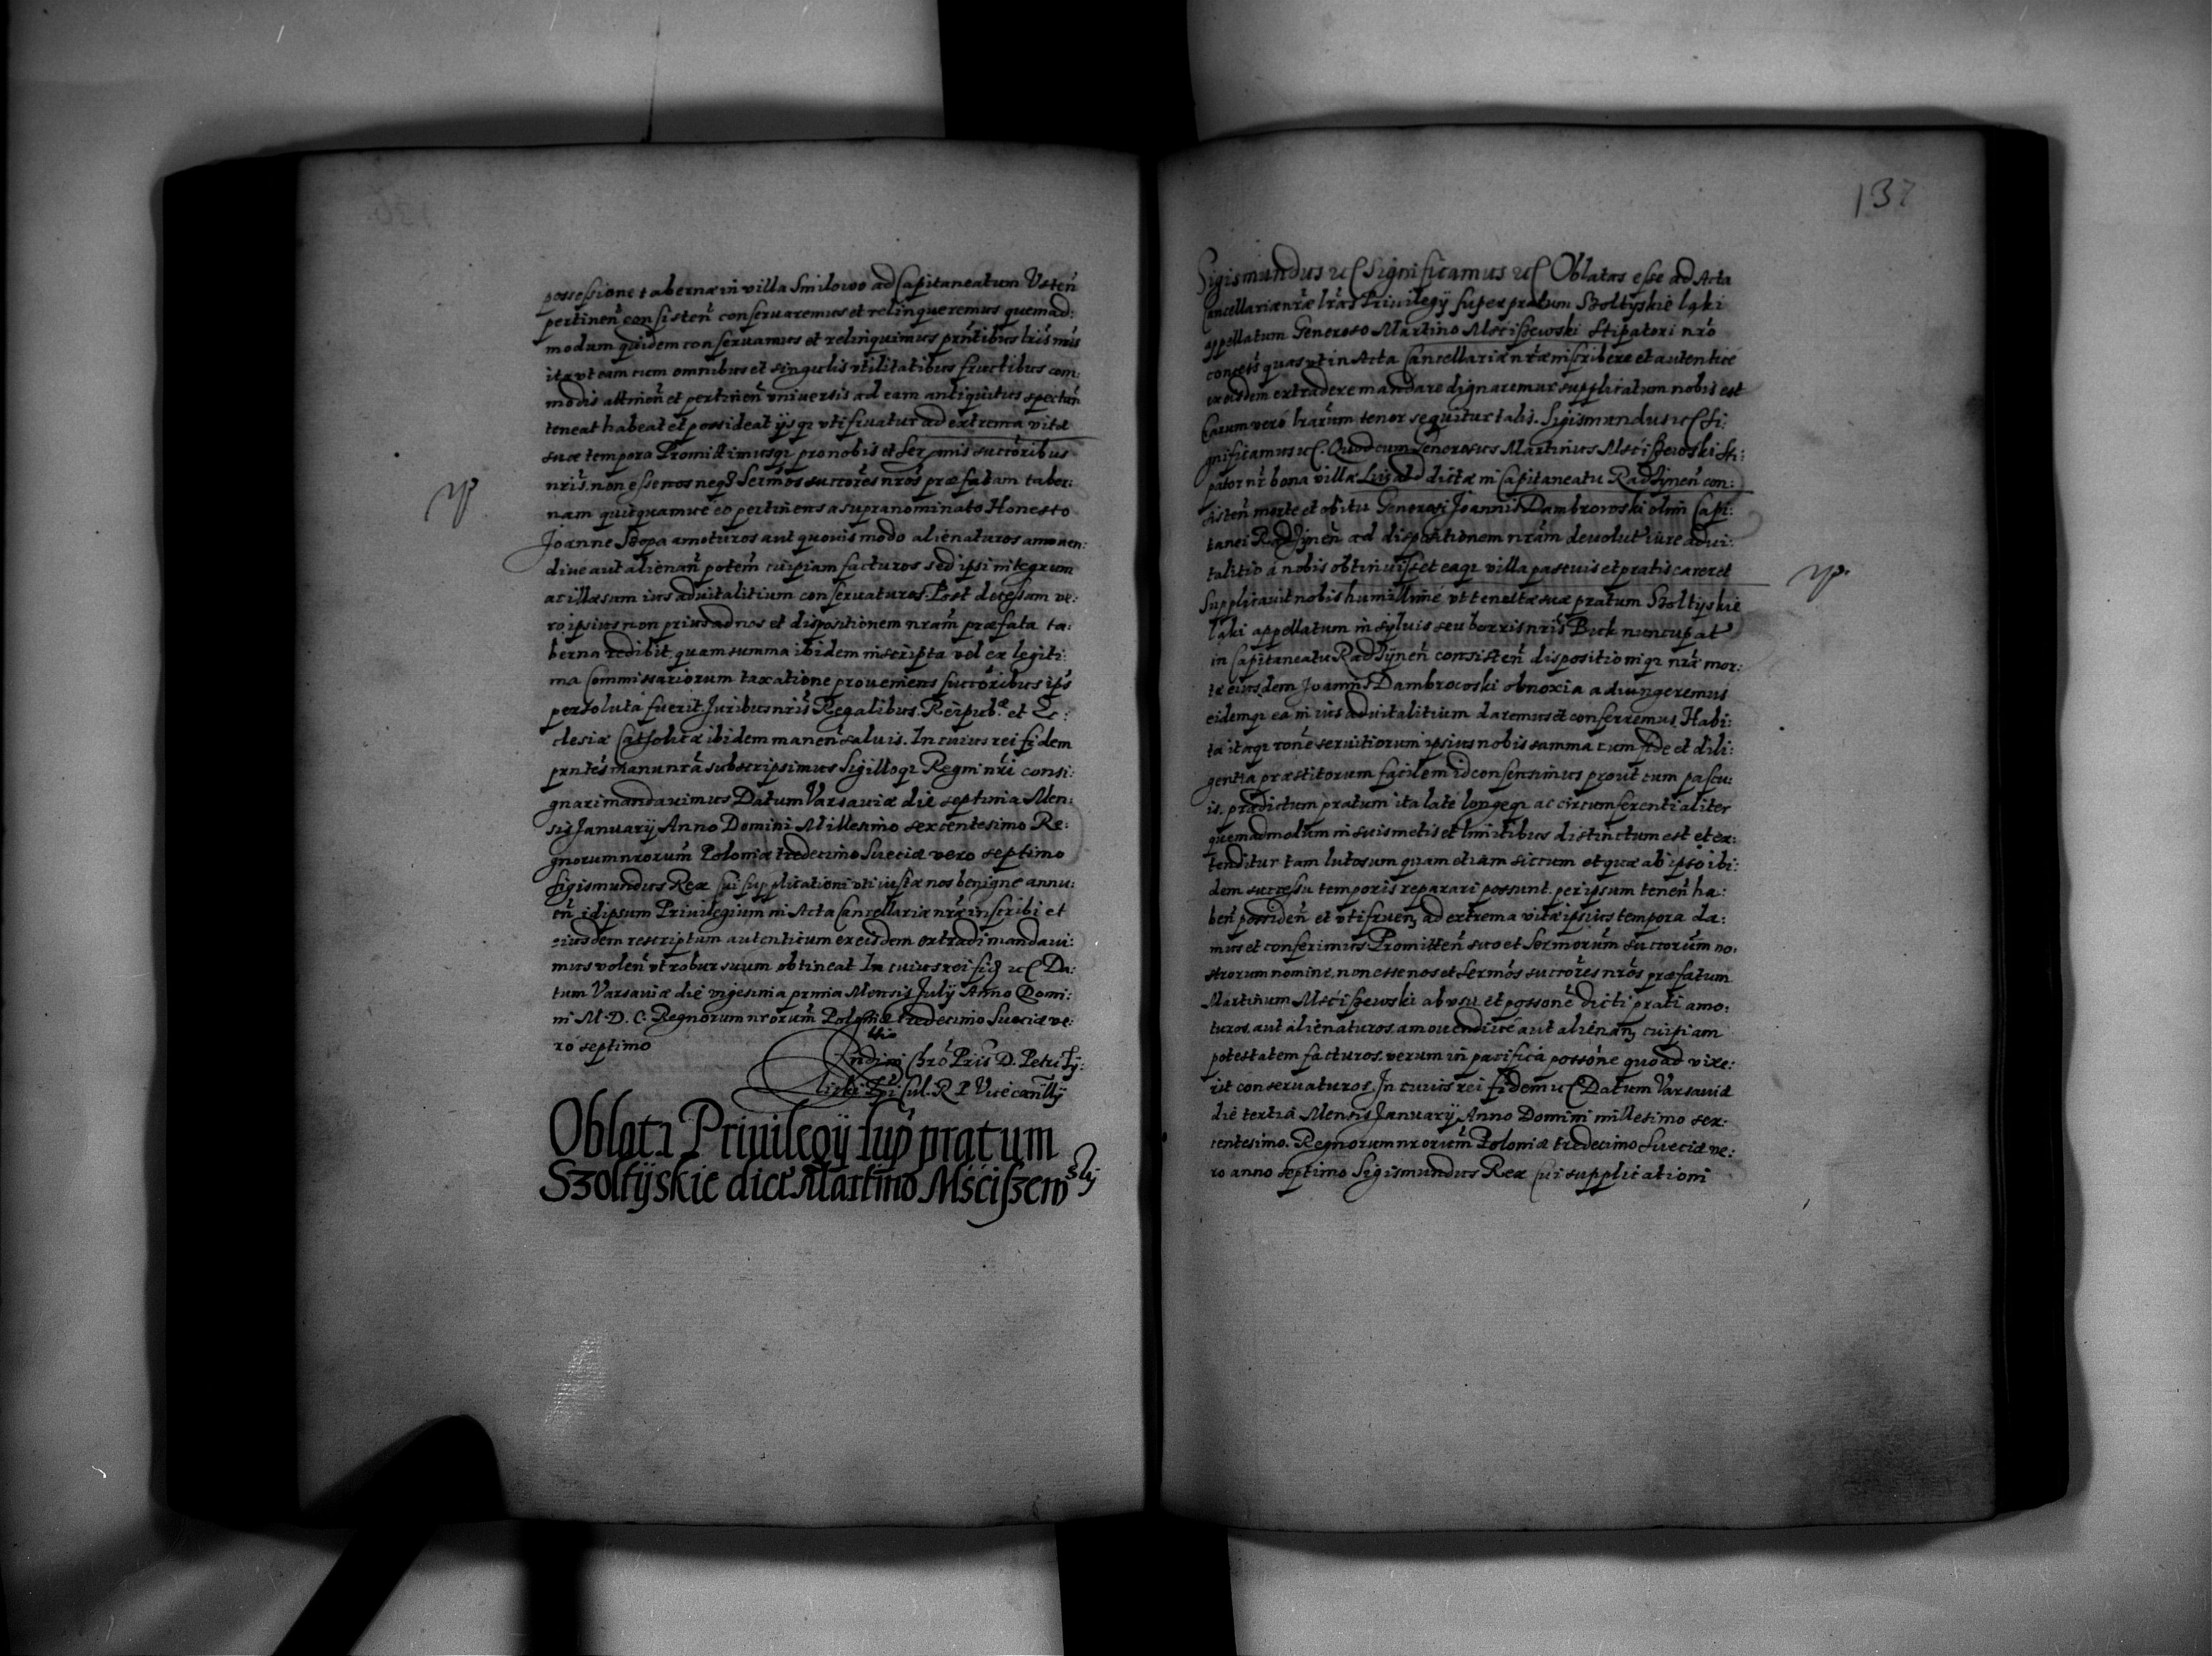 possessione tabernæ in villa Smilowo ad Capitaneatum Usten̄
pertinen̄ consisten̄ conservaremus et relinqueremus quemad:
modum quidem conservamus et relinquimus prn̄tibus lris̄ nris̄
ita vt eam cum omnibus et singulis vtilitatibus fructibus com:
modis attinen̄ et pertinen̄ vniversis ad eam antiquitus spectan̄
teneat habeat et possideat ijsq; vtifruatur ad extrema vitæ
suæ tempora Promittimusq; pro nobis et Ser mis successoribus
nris̄, non esse nos neq3 Sermōs succōres nrōs præfatam taber:
nam quicquamve eo pertinens a supranominato Honesto
Joanne amoturos aut quovis modo alienaturos amoven:
dive aut alienan̄ potem̄ cuipiam facturos sed ipsi integrum
ac illæsum ius advitalitium conservaturos. Post decessum ve:
ro ipsius non prius ad nos et dispositionem nram̄ præfata ta:
berna redibit, quam summa ibidem inscripta vel ex legiti:
ma Commissariorum taxatione proveniens succōribus ipsˢ
persoluta fuerit. Juribus nris̄ Regalibus. Reipub.ᵉ et Ec:
clesiæ Catholicæ ibidem manen̄ salvis. In cuius rei fidem
prntēs manu nrā subscripsimus Sigilloq; Regni nrī consi:
gnari mandavimus Datum Varsaviæ die septima Men:
sis Januarij Anno Domini Millesimo sexcentesimo Re:
gnorum nrorum̄ Poloniæ tredecimo Sueciæ vero septimo
Sigismundus Rex Cui supplicationi vti iustæ nos benigne annu:
en̄ id ipsum Privilegium in Acta Cancellariæ nrǣ inscribi et
eiusdem rescriptum autenticum ex eisdem extradi mandavi:
mus volen̄ vt robur suum obtineat In cuius rei fid; &c Da:
tum Varsaviæ die vigesima prima Mensis Julij Anno Domi:
ni M. D. C. Regnorum nrorum̄ Poloniæ tredecimo Sueciæ ve:
ro septimo
Chrō Pris̄ D. Petri Ty:
licki R P Vicecanllīj
Oblat Privilegij sup̄ pratum
Szoltijskie dict Martino Mścißewsk̄ij
137
Sigismundus &c Significamus &c Oblatas esse ad Acta
Cancellariæ nrǣ lrās Privilegij super pratum Szoltyskie Łąki
appellatum Generoso Martino Mścißewski Stipatori nrō
concess̄ quas vt in Acta Cancellariæ nrǣ inscribere et autenticè
ex eisdem extradere mandare dignaremur supplicatum nobis est
Earum verò lrarūm tenor sequitur talis. Sigismundus &c Si:
gnificamus &c. Quod cum Generosus Martinus Mścißewski Sti:
pator nr̄ bona villæ dictæ in Capitaneatu Radzijnen̄ con:
sisten̄ morte et obitu Generosi Joannis Dambrowski olim Capi:
tanei Radzijnen̄ ad dispositionem nram̄ devolut iure advi:
talitio à nobis obtinuisset eaq; villa pascuis et pratis careret
Supplicavit nobis humillime vt tenutæ suæ pratum Szoltyskie
Łąki appellatum in sylvis seu borris nris̄ Buk nuncupat
in Capitaneatu Radzijnen̄ consisten̄ dispositioniq; nrǣ mor:
te eiusdem Joannis Dambrowski obnoxia adiungeremus
eidemq; ea in ius advitalitium daremus et conferremus. Habi:
ta itaq; ronē servitiorum ipsius nobis summa cum fide et dili:
gentia præstitorum facilem id consensimus prout cum pascu:
is, prædictum pratum ita latè longeq; ac circumferentialiter
quemadmodum in suis metis et limitibus distinctum est et ex:
tenditur tam lutosum quam etiam siccum et quæ ab ipso ibi:
dem successu temporis reparari possunt, per ipsum tenen̄ ha:
ben̄ possiden̄ et vtifruen; ad extrema vitæ ipsius tempora da:
mus et conferimus Promitten̄ suo et Sermorum̄ succorum̄ no:
strorum nomine, non esse nos et Sermōs succōres nrōs præfatum
Martinum Mścißewski ab vsu et possone̅ dicti prati amo:
turos, aut alienaturos, amovendivè aut alienan; cuipiam
potestatem facturos, verum in pacifica possōne quoad vixe:
rit conservaturos. In cuius rei fidem &c Datum Varsaviæ
die tertia Mensis Januarij Anno Domini millesimo sex:
centesimo. Regnorum nrorum̄ Poloniæ tredecimo Sueciæ ve:
ro anno septimo Sigismundus Rex Cui supplicationi